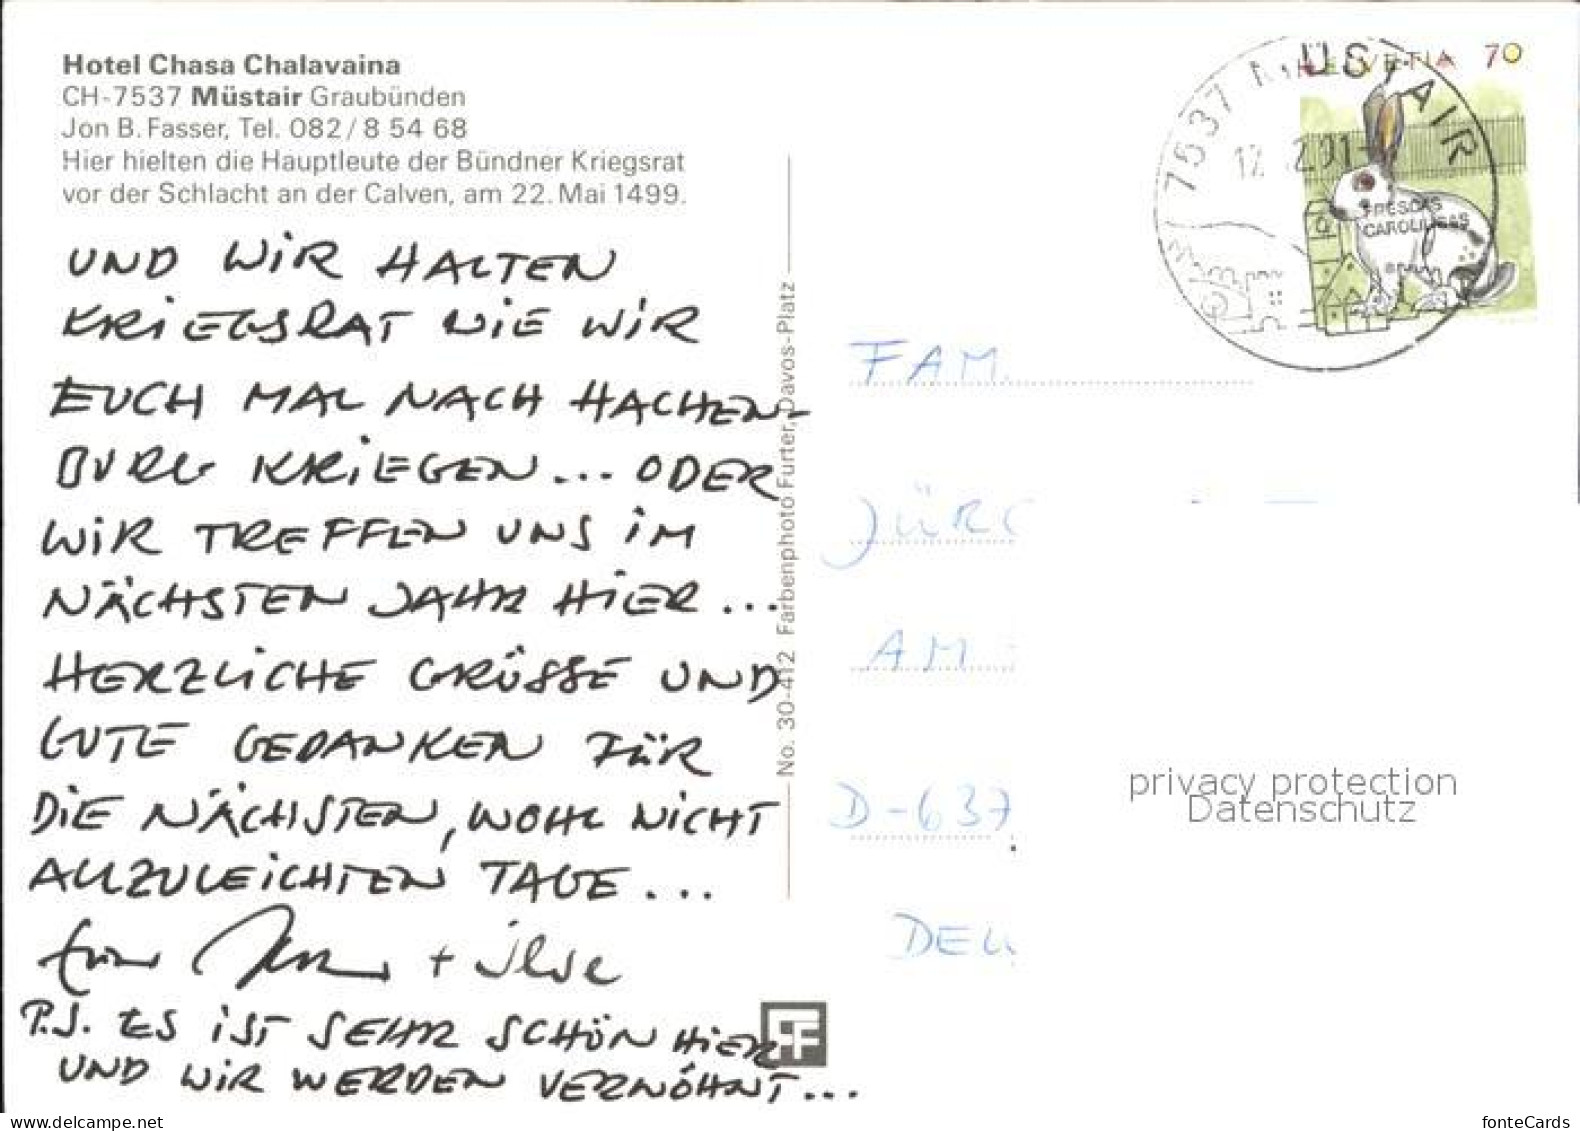 Hotel Chasa Chalavaina
CH-7537 Müstair Graubünden
Jon B. Fasser, Tel. 082 / 8 54 68
Hier hielten die Hauptleute der Bündner Kriegsrat
vor der Schlacht an der Calven, am 22. Mai 1499.
UND WIR HALTEN
KRIEGSRAT WIE WIR
EUCH MAL NACH HACHEN-
BURG KRIEGEN... ODER
WIR TREFFEN UNS IM
NÄCHSTEN JAHR HIER...
HERZLICHE GRÜSSE UND
GUTE GEDANKEN FÜR
DIE NÄCHSTEN, WOHL NICHT
ALLZULEICHTEN TAGE...
+ ilse
P.S. ES IST SEHR SCHÖN HIER
UND WIR WERDEN VERWÖHNT...
No. 30-412 Farbenphoto Furter, Davos-Platz
FF
HELVETIA 70
7537 MÜSTAIR
FAM.
JÜRG
AM
D-637
privacy protection
Datenschutz
www.delcampe.net
fonteCards